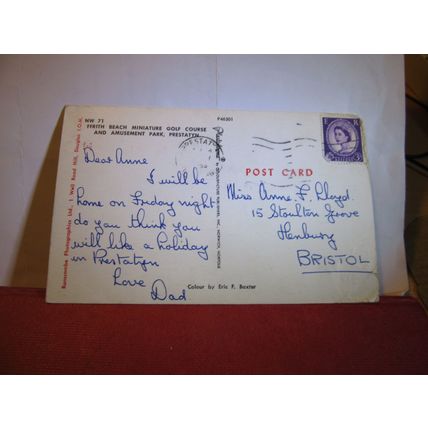 NW 71
FFRITH BEACH MINIATURE GOLF COURSE
AND AMUSEMENT PARK, PRESTATYN
P46301
PRESTATYN
Dear Anne
I will be
home on Friday night
do you think you
will like a holiday
in Prestatyn
Love
Dad
POST CARD
Miss Anne. F. Lloyd.
15 Stoulton Grove
Henbury
BRISTOL
Colour by Eric F. Baxter
Bamforth